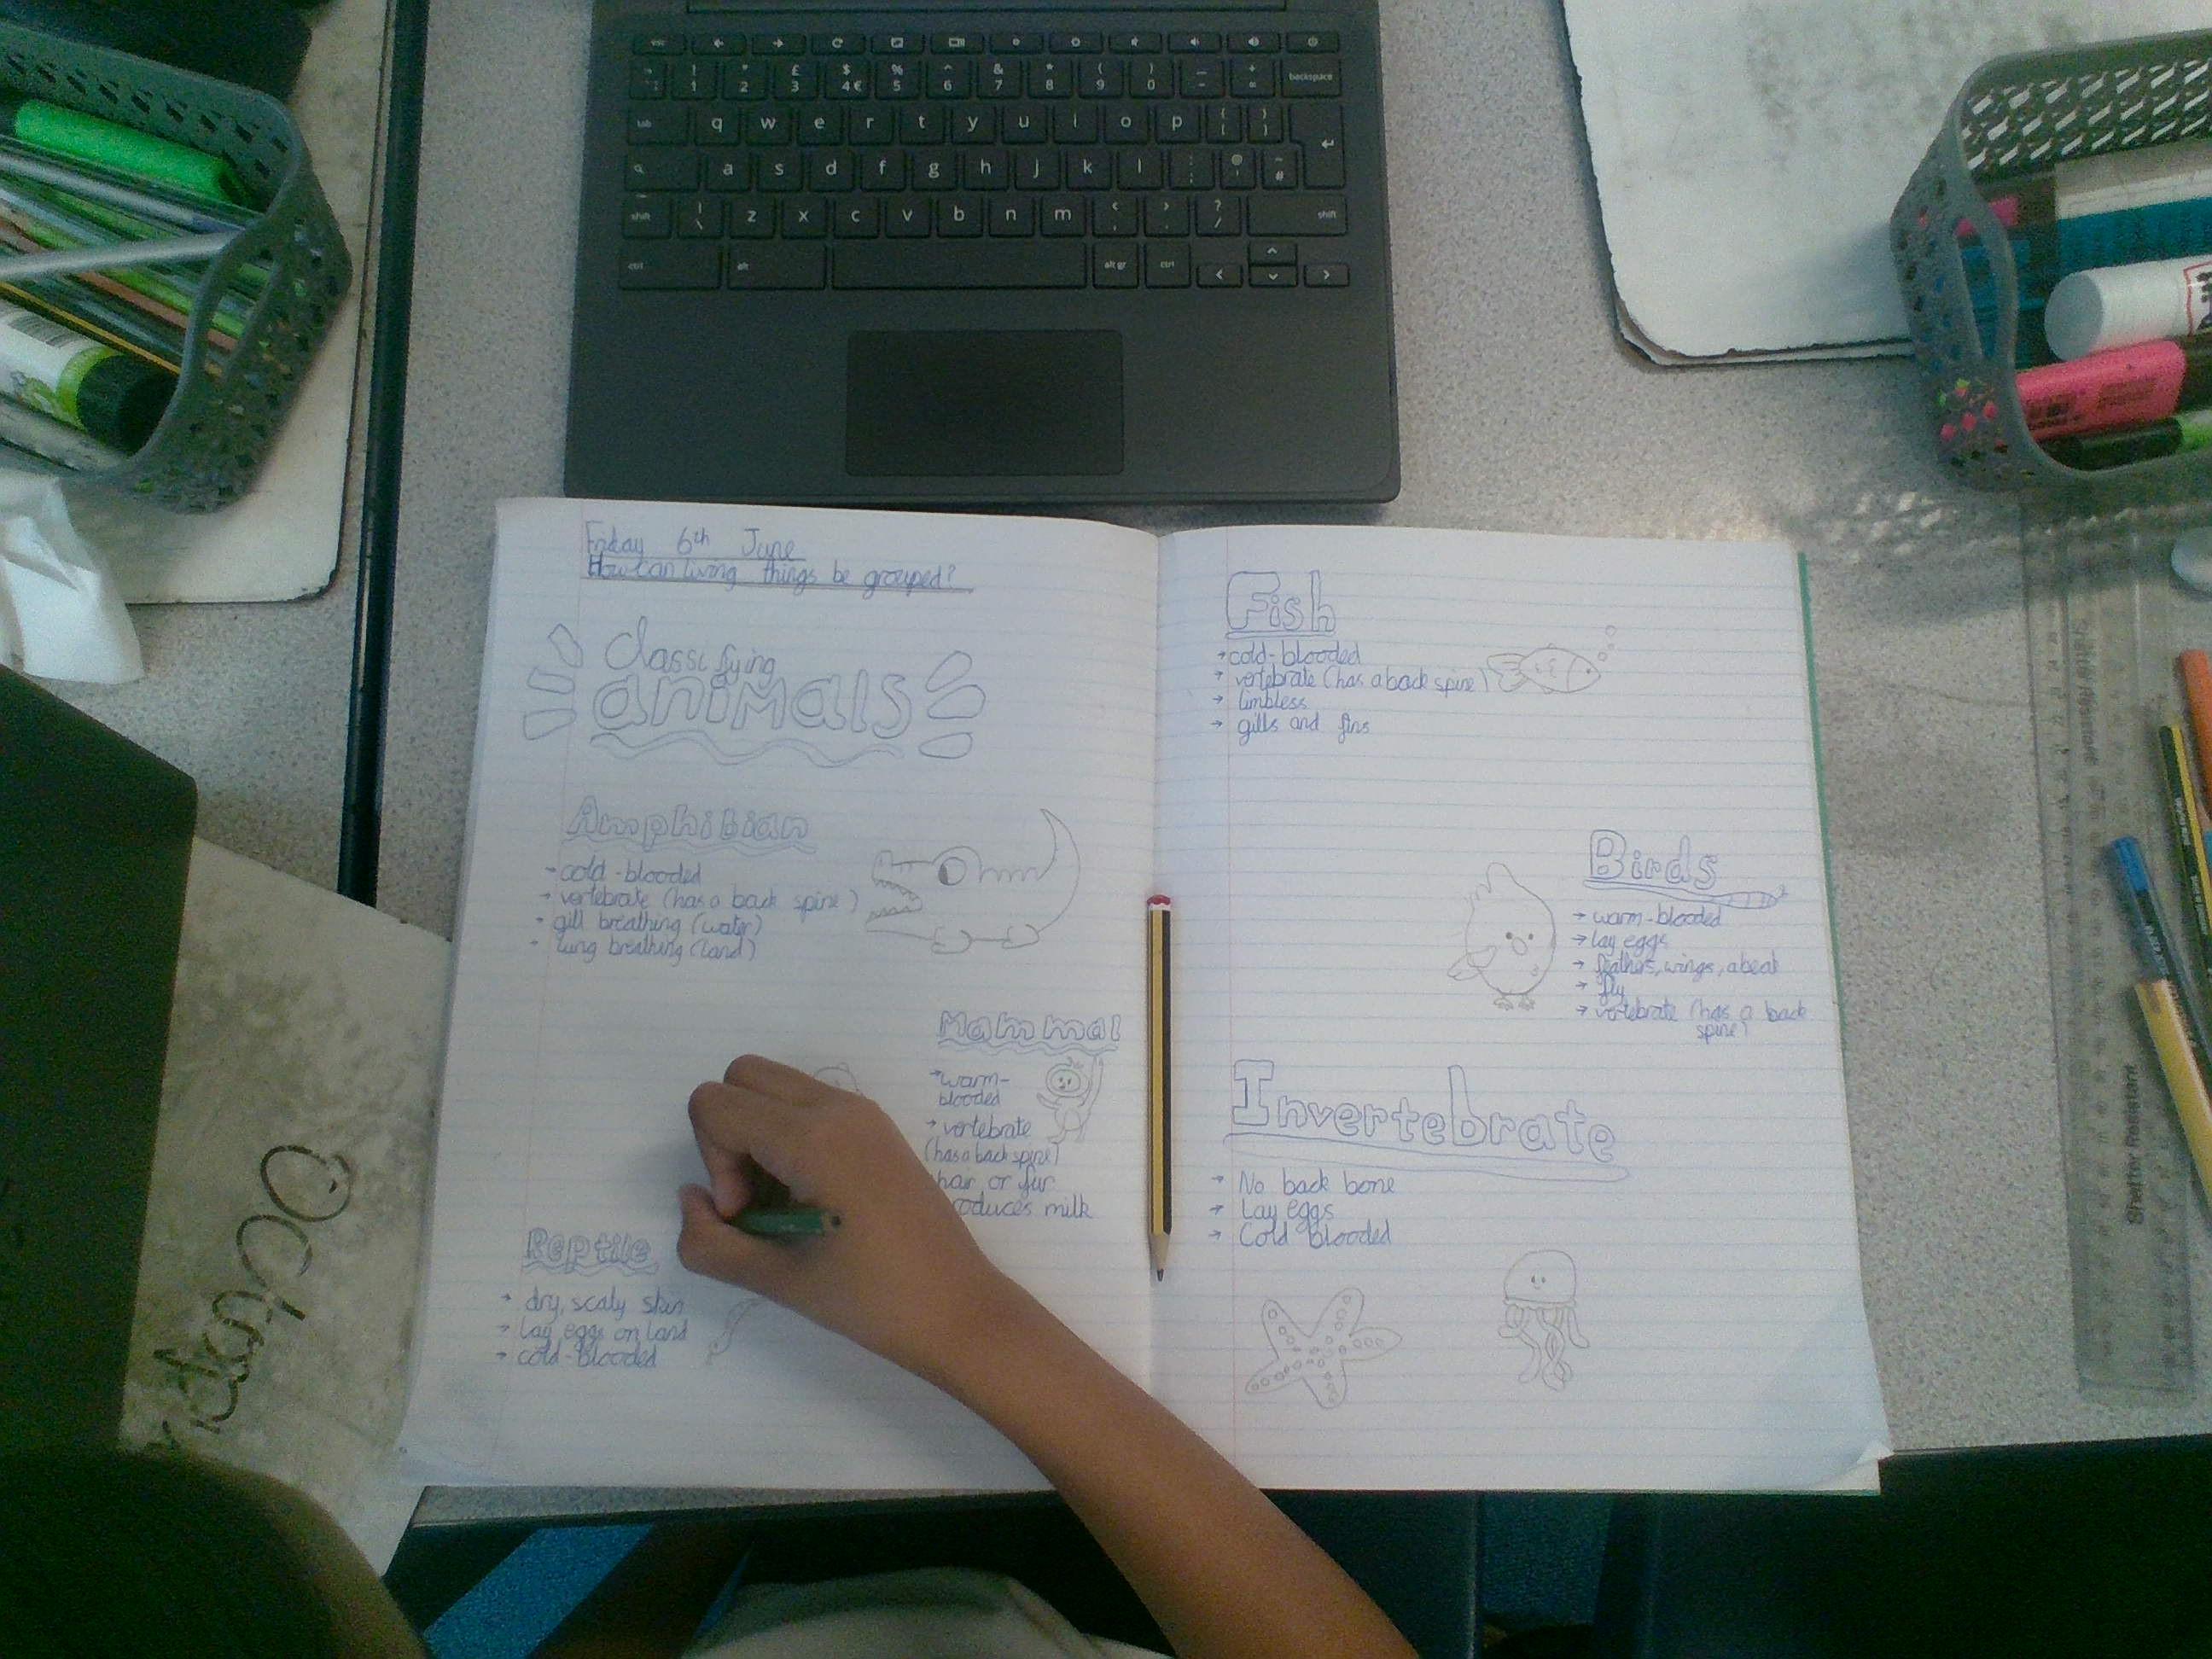 Friday 6th June
How can living things be grouped?
classifying
animals
Amphibian
→ cold-blooded
→ vertebrate (has a back spine)
→ gill breathing (water)
→ lung breathing (land)
Mammal
→ warm-
blooded
→ vertebrate
(has a back spine)
hair or fur
roduces milk
Reptile
→ dry, scaly skin
→ lay eggs on land
→ cold-blooded
Fish
→ cold-blooded
→ vertebrate (has a back spine)
→ limbless
→ gills and fins
Birds
→ warm-blooded
→ lay eggs
→ feathers, wings, a beak
→ fly
→ vertebrate (has a back
spine)
Invertebrate
→ No back bone
→ Lay eggs
→ Cold blooded
esc
! " £ $ % ^ & * ( ) _ +
1 2 3 4 € 5 6 7 8 9 0 - = backspace
tab q w e r t y u i o p { [ } ]
a s d f g h j k l : ; @ ' ~ #
shift | \ z x c v b n m < , > . ? / shift
ctrl alt alt gr ctrl
Shatter Resistant